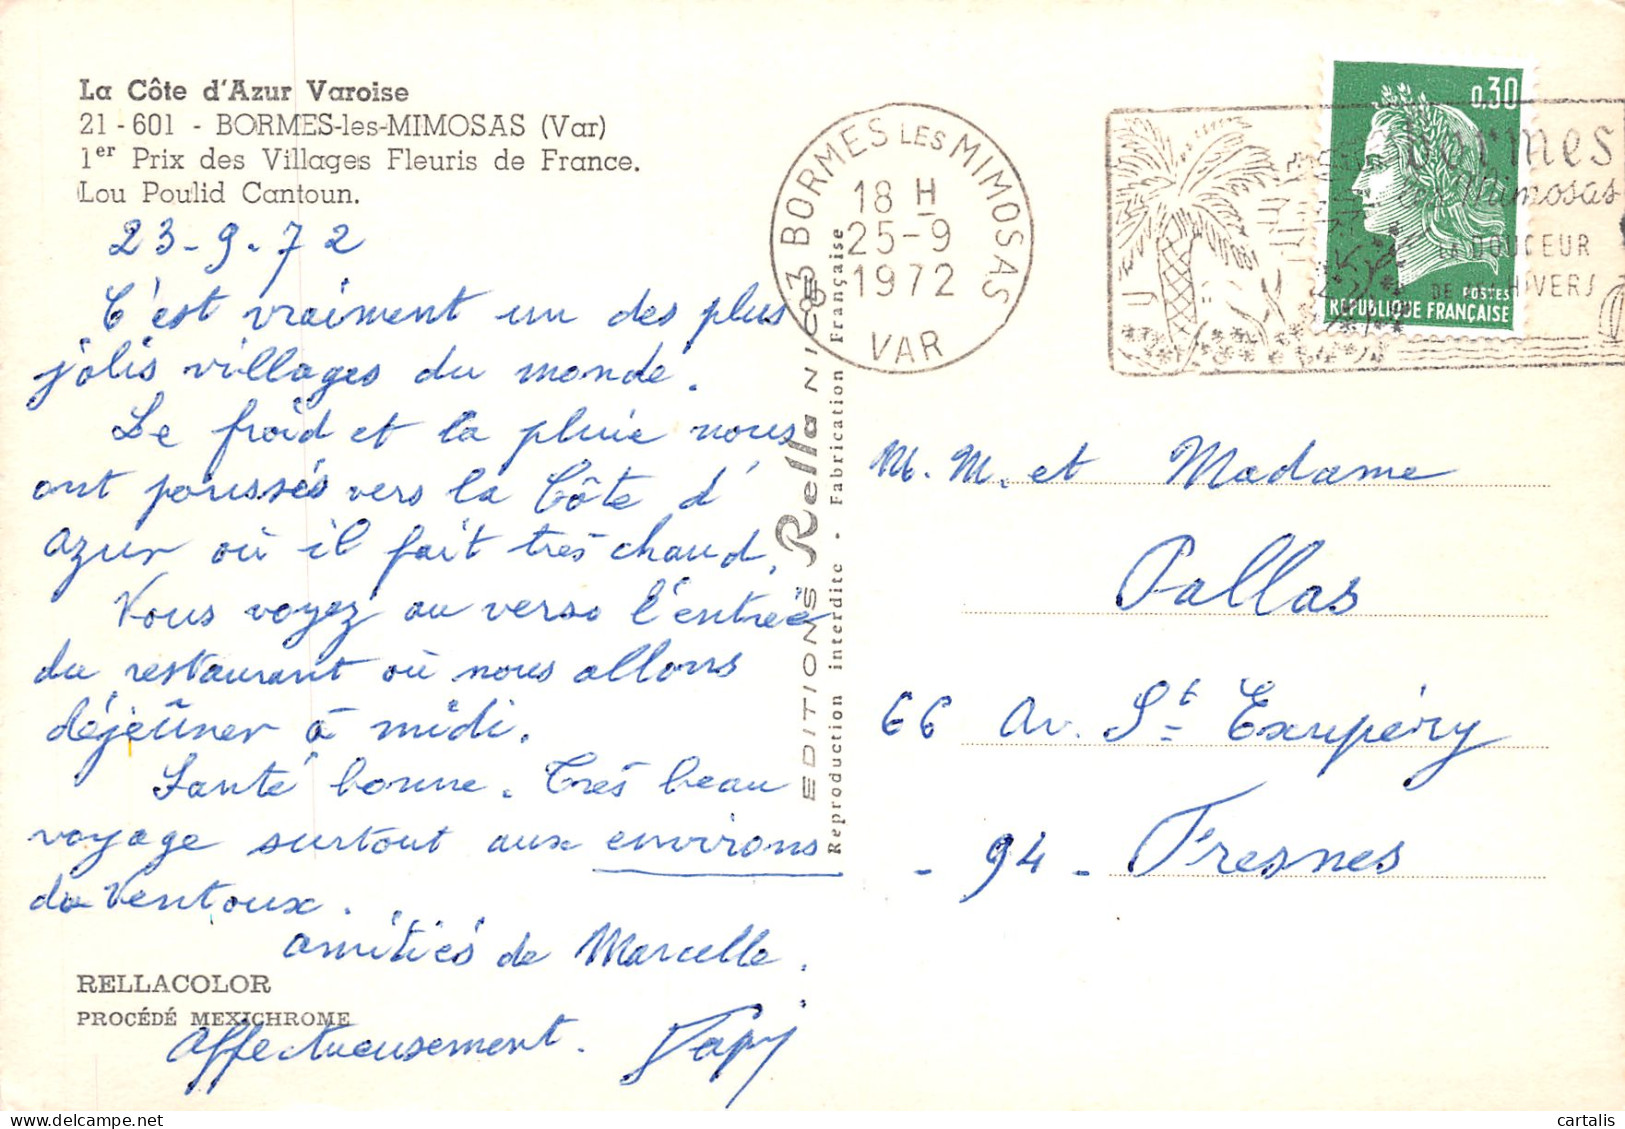 La Côte d'Azur Varoise
21-601 - BORMES-les-MIMOSAS (Var)
1er Prix des Villages Fleuris de France.
Lou Poulid Cantoun.
23-9-72
C'est vraiment un des plus
jolis villages du monde.
Le froid et la pluie nous
ont poussés vers la Côte d'
azur où il fait très chaud.
Vous voyez au verso l'entrée
du restaurant où nous allons
déjeûner à midi.
Santé bonne. Très beau
voyage surtout aux environs
du Ventoux.
amitiés de Marcelle.
affectueusement. Papy
RELLACOLOR
PROCÉDÉ MEXICHROME
EDITIONS Rella NICE
Reproduction interdite - Fabrication Française
83 BORMES LES MIMOSAS
18 H
25-9
1972
VAR
Bormes
les Mimosas
LA DOUCEUR
DE HIVERS
0,30
POSTES
REPUBLIQUE FRANÇAISE
M. M. et Madame
Pallas
66 Av. St Exupéry
- 94 - Fresnes
cartalis